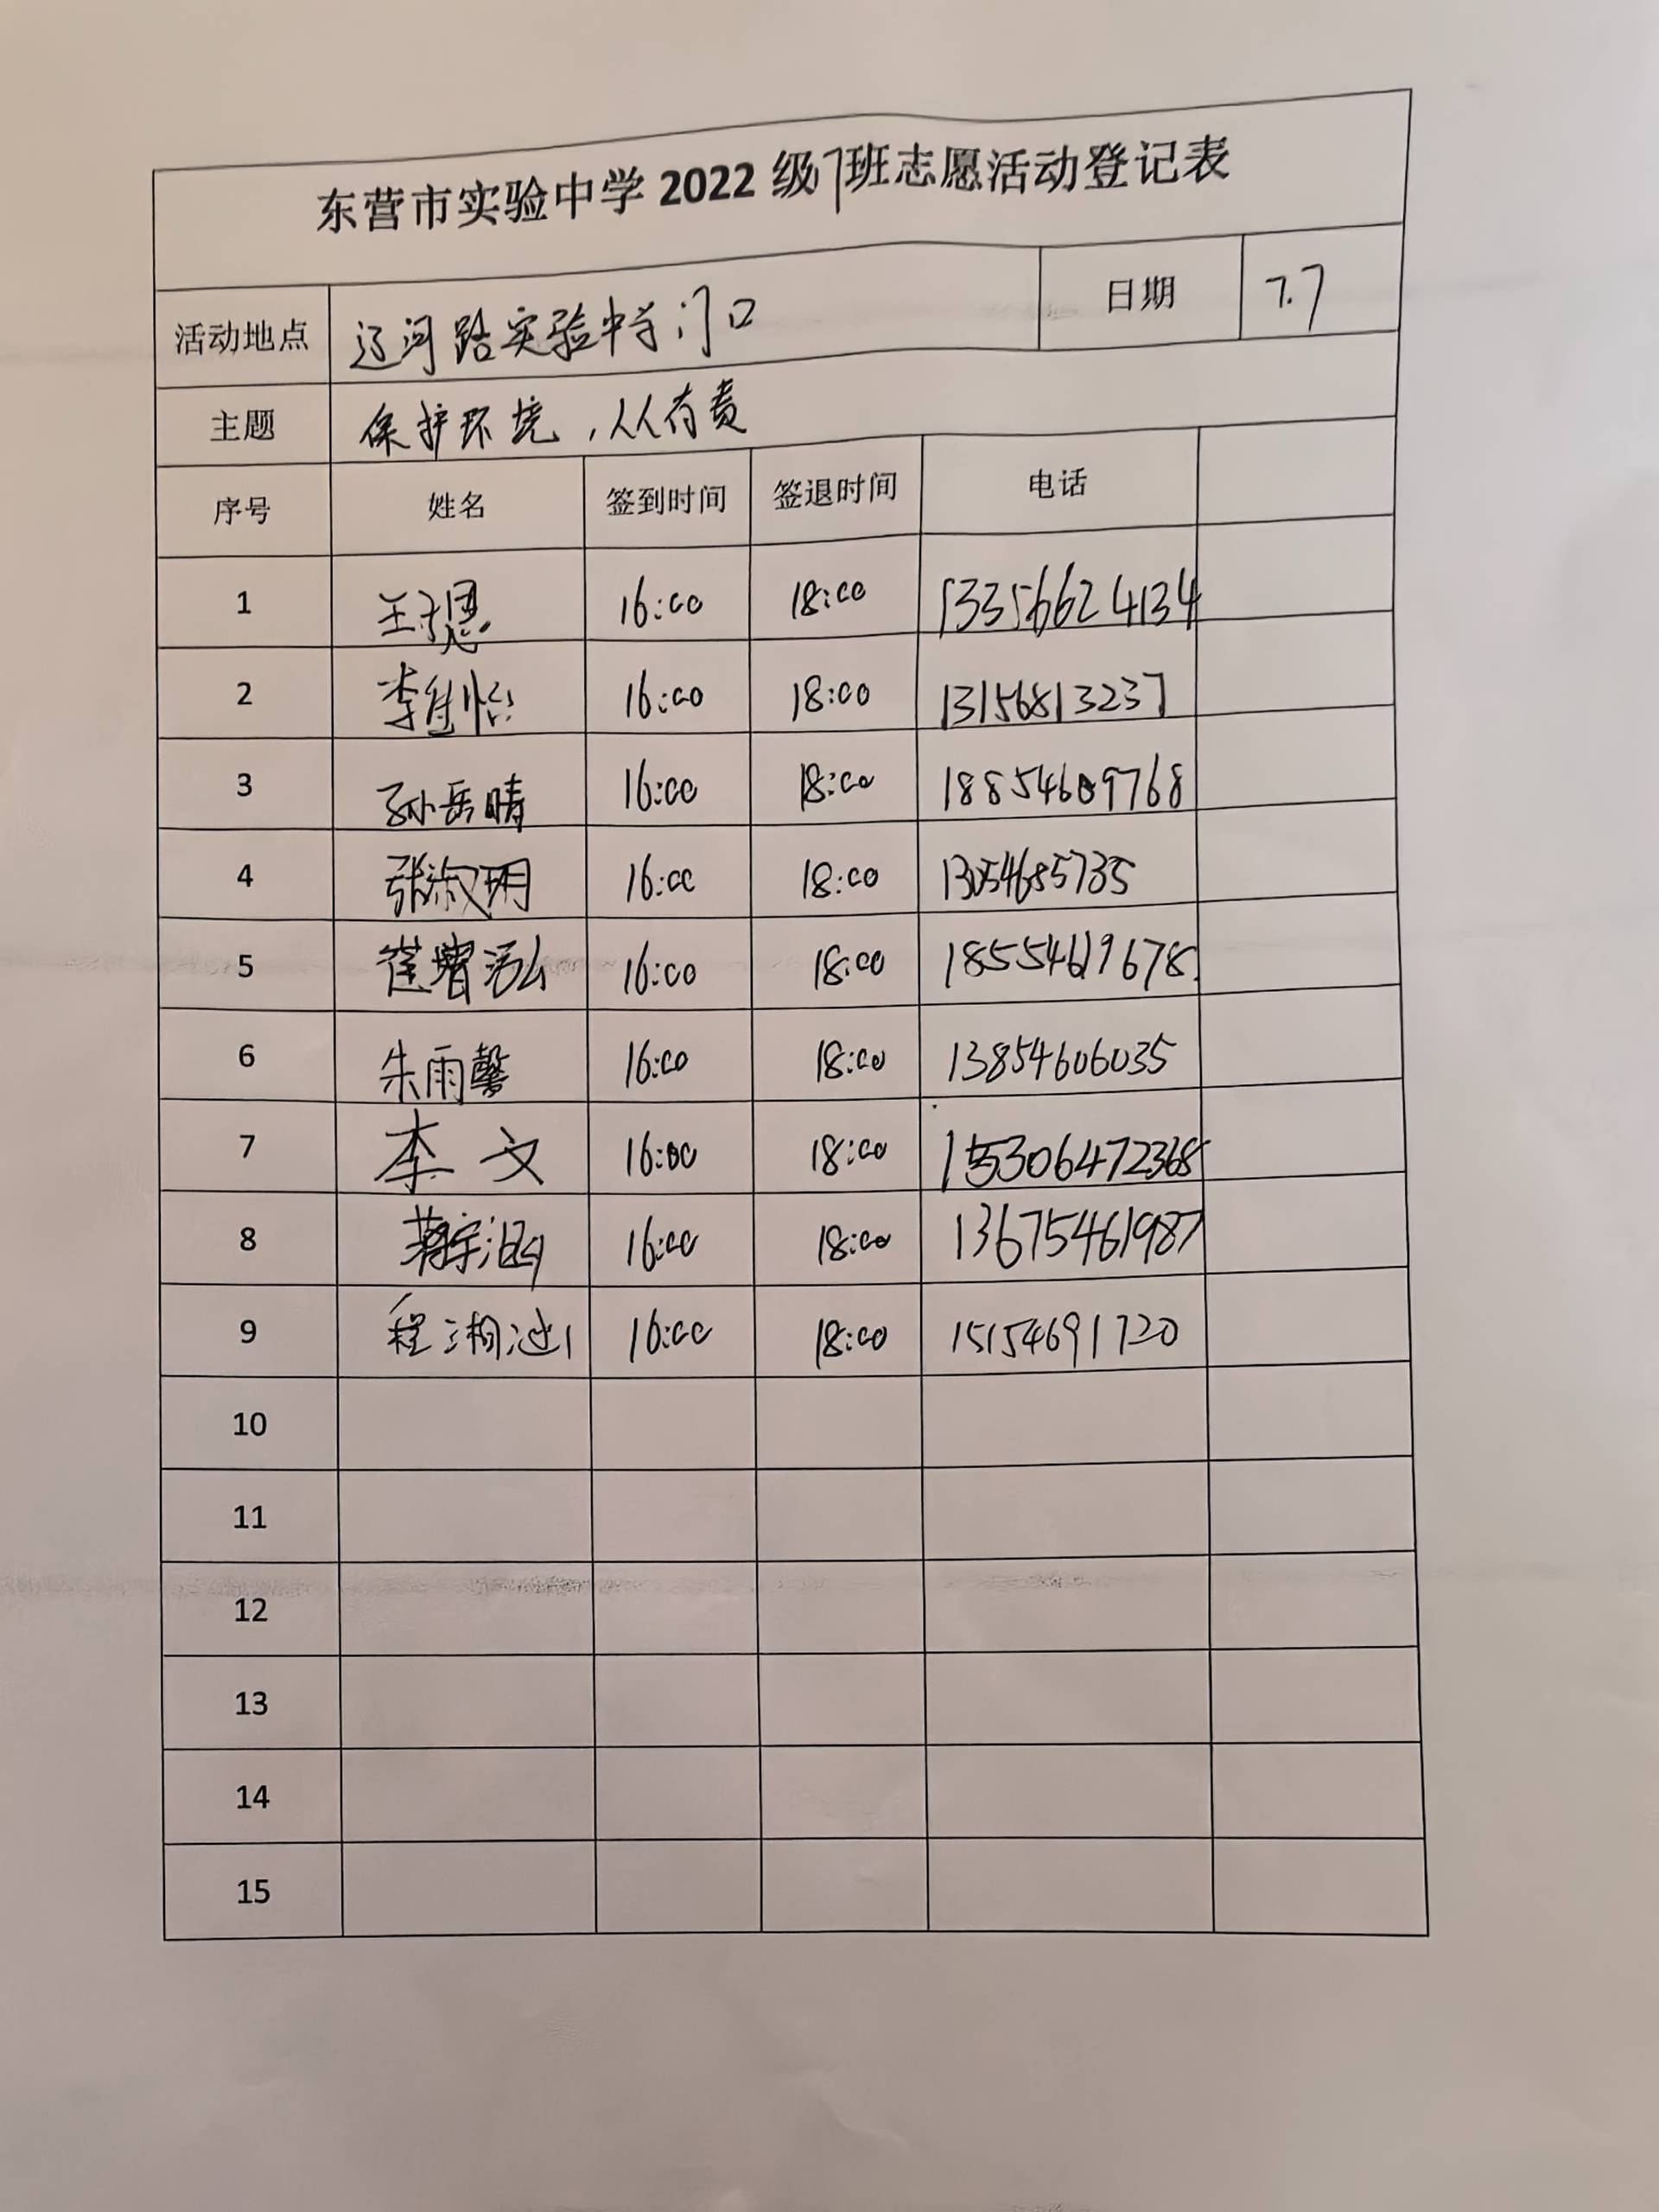 东营市实验中学 2022 级7班志愿活动登记表
活动地点 辽河路实验中学门口 日期 7.7
主题 保护环境，人人有责
序号 姓名 签到时间 签退时间 电话
1 王子恩 16:00 18:00 13356624134
2 李佳怡 16:00 18:00 13156813237
3 孙岳晴 16:00 18:00 18854609768
4 张淑玥 16:00 18:00 13054685735
5 崔曾泓 16:00 18:00 18554619678
6 朱雨馨 16:00 18:00 13854606035
7 李文 16:00 18:00 15306472368
8 蒋宇涵 16:00 18:00 13675461987
9 程湘 16:00 18:00 15154691720
10
11
12
13
14
15